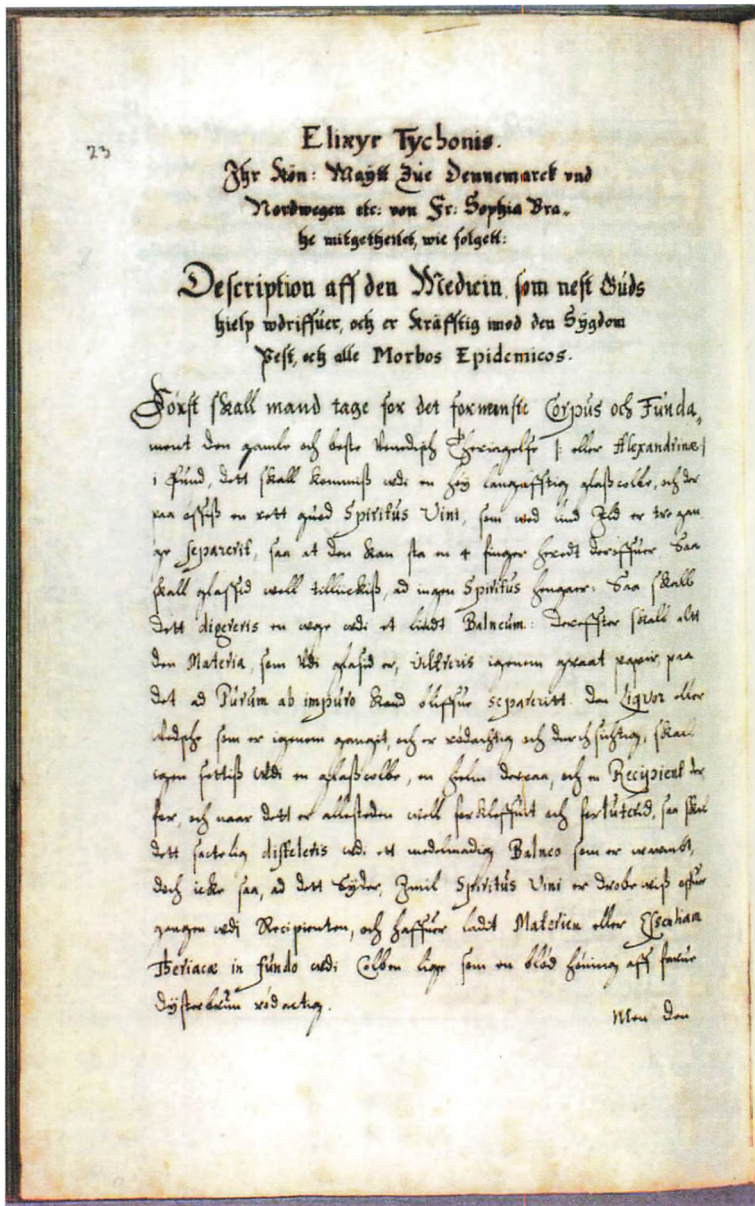 23
Elixyr Tychonis.
Ihr Kön: Maÿtt Züe Dennemarck vnd
Nordwegen etc: von Fr: Sophia Bra„
he mitgetheilet, wie folgett:
Description aff den Medicin, som nest Gúds
hielp wdriffúer, och er kräfftig mod den Sÿgdom
Pest, och alle Morbos Epidemicos.
Först skall mand tage for det fornemste Corpús och Fúnda„
ment den gamle och beste Venedisch |: eller Alexandrinæ :|
i Púnd, dett skall kommiß wdi en höÿ glaßcolbe, och der
paa en rett gued Spiritús Vini, som wed lind Ild er tre gan
ge separerit, saa at den kan sta en 4 finger bredt deroffúer. Saa
skall glassid well tilluckiß, ad ingen Spiritús : Saa skall
dett digereris en wge wdi et lindt Balneúm: Dereffter skall altt
den Materia, som udi glasid er, igenem graat papir, paa
det ad Púrúm ab impúro kand bliffúe separeritt. Den Liqvor eller
wedsche som er igenem gangit, och er rödachtig och dúrchsichtig, skall
igen settiß wdi en glaßcolbe, en hielm derpaa, och en Recipient der
for, och naar dett er allesteden well och forlúterid, saa skal
dett sactelig disteleris wdi ett medelmadig Balneo som er warmbt,
doch icke saa, ad dett Sÿder, Imil Spiritús Vini er drobewiß offúer
gangen wdi Recipienten, och haffúer ladit Materien eller Essentiam
Theriacæ in fúndo wdi Colben lige som en blöd hóning aff farúe
rödactig.
Men den